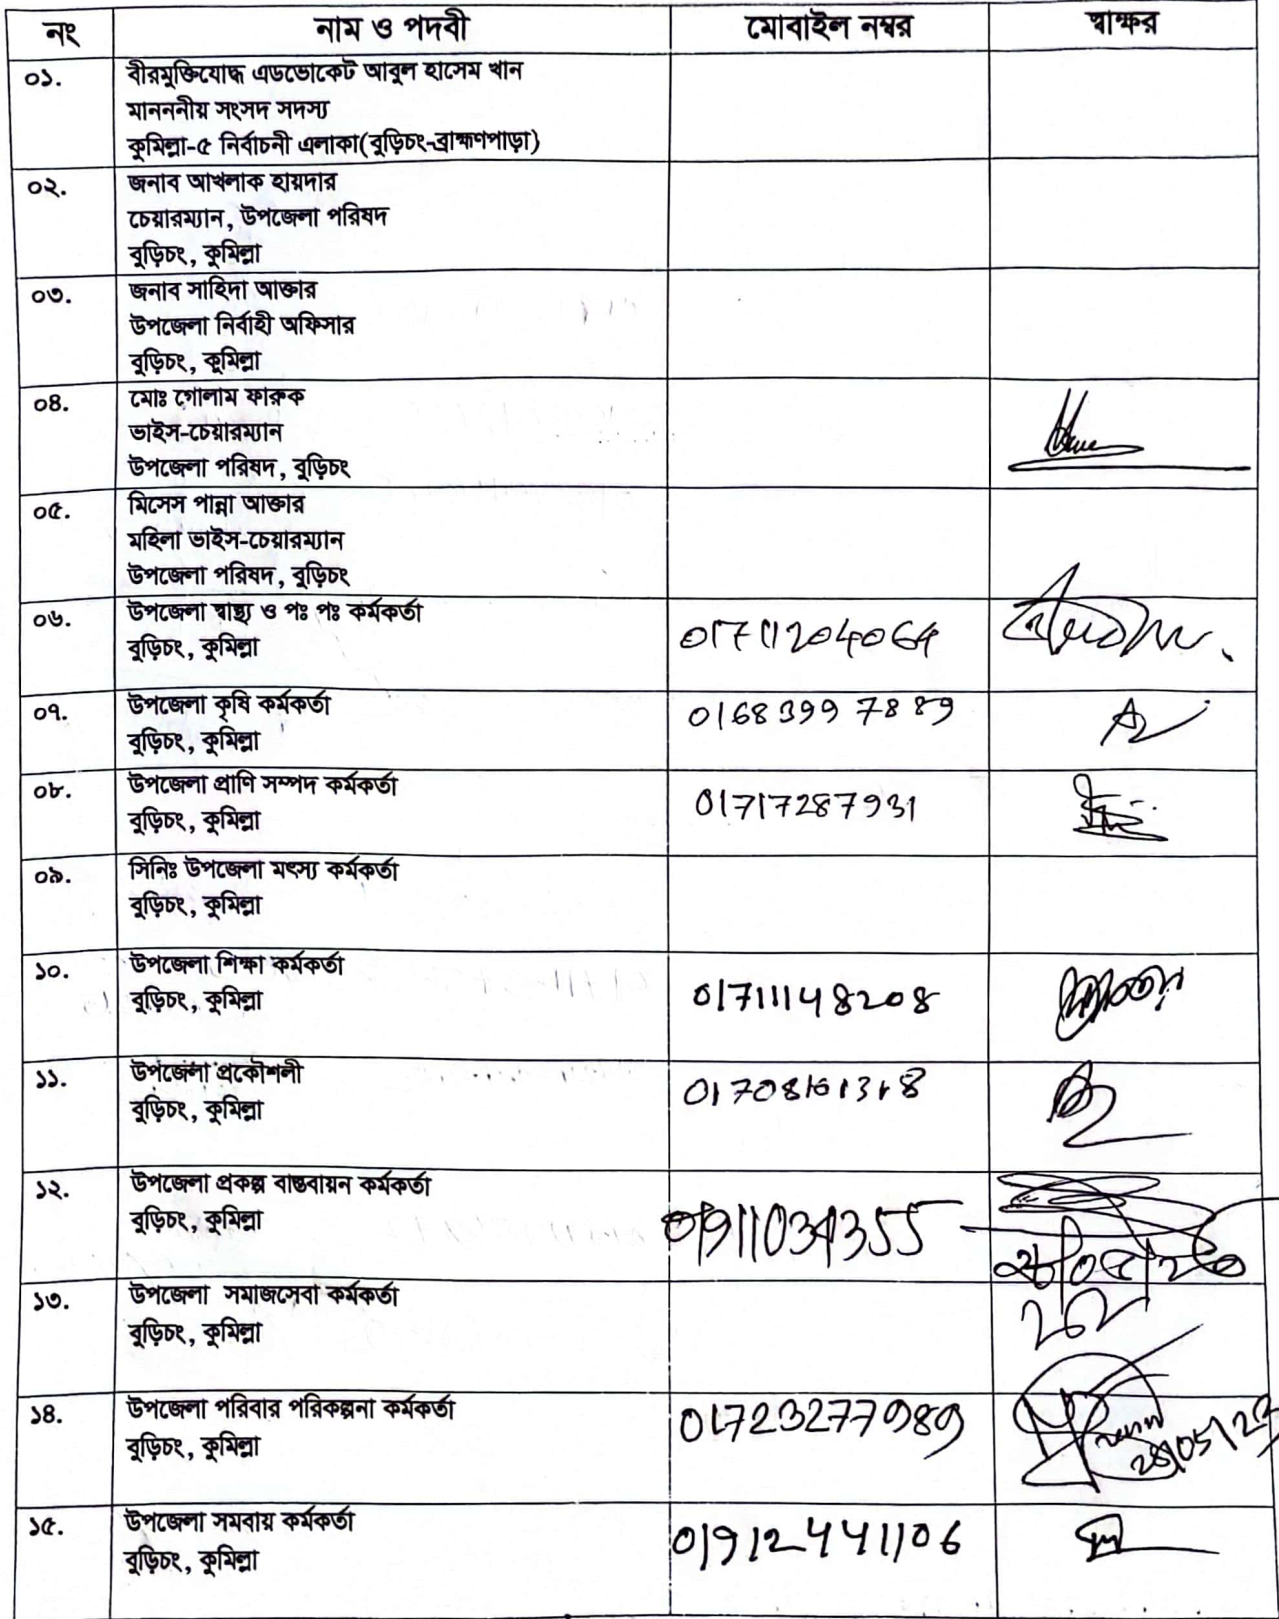 নং নাম ও পদবী মোবাইল নম্বর স্বাক্ষর
০১. বীরমুক্তিযোদ্ধ এডভোকেট আবুল হাসেম খান
মানননীয় সংসদ সদস্য
কুমিল্লা-৫ নির্বাচনী এলাকা(বুড়িচং-ব্রাহ্মণপাড়া)
০২. জনাব আখলাক হায়দার
চেয়ারম্যান, উপজেলা পরিষদ
বুড়িচং, কুমিল্লা
০৩. জনাব সাহিদা আক্তার
উপজেলা নির্বাহী অফিসার
বুড়িচং, কুমিল্লা
০৪. মোঃ গোলাম ফারুক
ভাইস-চেয়ারম্যান
উপজেলা পরিষদ, বুড়িচং
০৫. মিসেস পান্না আক্তার
মহিলা ভাইস-চেয়ারম্যান
উপজেলা পরিষদ, বুড়িচং
০৬. উপজেলা স্বাস্থ্য ও পঃ পঃ কর্মকর্তা
বুড়িচং, কুমিল্লা 01711204064
০৭. উপজেলা কৃষি কর্মকর্তা 01683997889
বুড়িচং, কুমিল্লা
০৮. উপজেলা প্রাণি সম্পদ কর্মকর্তা
বুড়িচং, কুমিল্লা 01717287931
০৯. সিনিঃ উপজেলা মৎস্য কর্মকর্তা
বুড়িচং, কুমিল্লা
১০. উপজেলা শিক্ষা কর্মকর্তা
বুড়িচং, কুমিল্লা 01711148208
১১. উপজেলা প্রকৌশলী
বুড়িচং, কুমিল্লা 01708161318
১২. উপজেলা প্রকল্প বাস্তবায়ন কর্মকর্তা
বুড়িচং, কুমিল্লা 01911034355
১৩. উপজেলা সমাজসেবা কর্মকর্তা
বুড়িচং, কুমিল্লা
১৪. উপজেলা পরিবার পরিকল্পনা কর্মকর্তা 01723277989
বুড়িচং, কুমিল্লা 28/05/23
১৫. উপজেলা সমবায় কর্মকর্তা
বুড়িচং, কুমিল্লা 01912441106